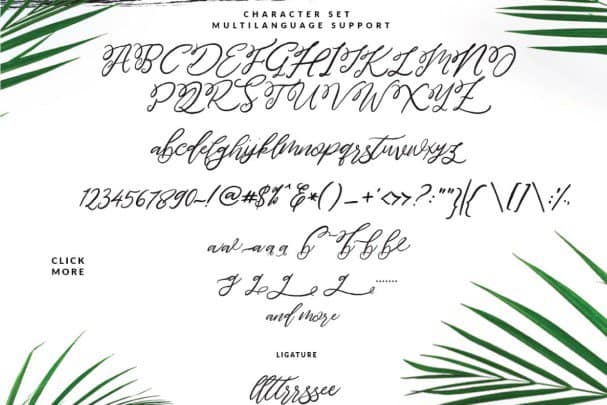 CHARACTER SET
MULTILANGUAGE SUPPORT
ABCDEFGHIJKLMNO
PQRSTUVWXYZ
abcdefghijklmnopqrstuvwxyz
1234567890~!@#$%^&*()_-+'<>?:""}|{\[]\:%.
CLICK
MORE
and more
LIGATURE
llttrrssee